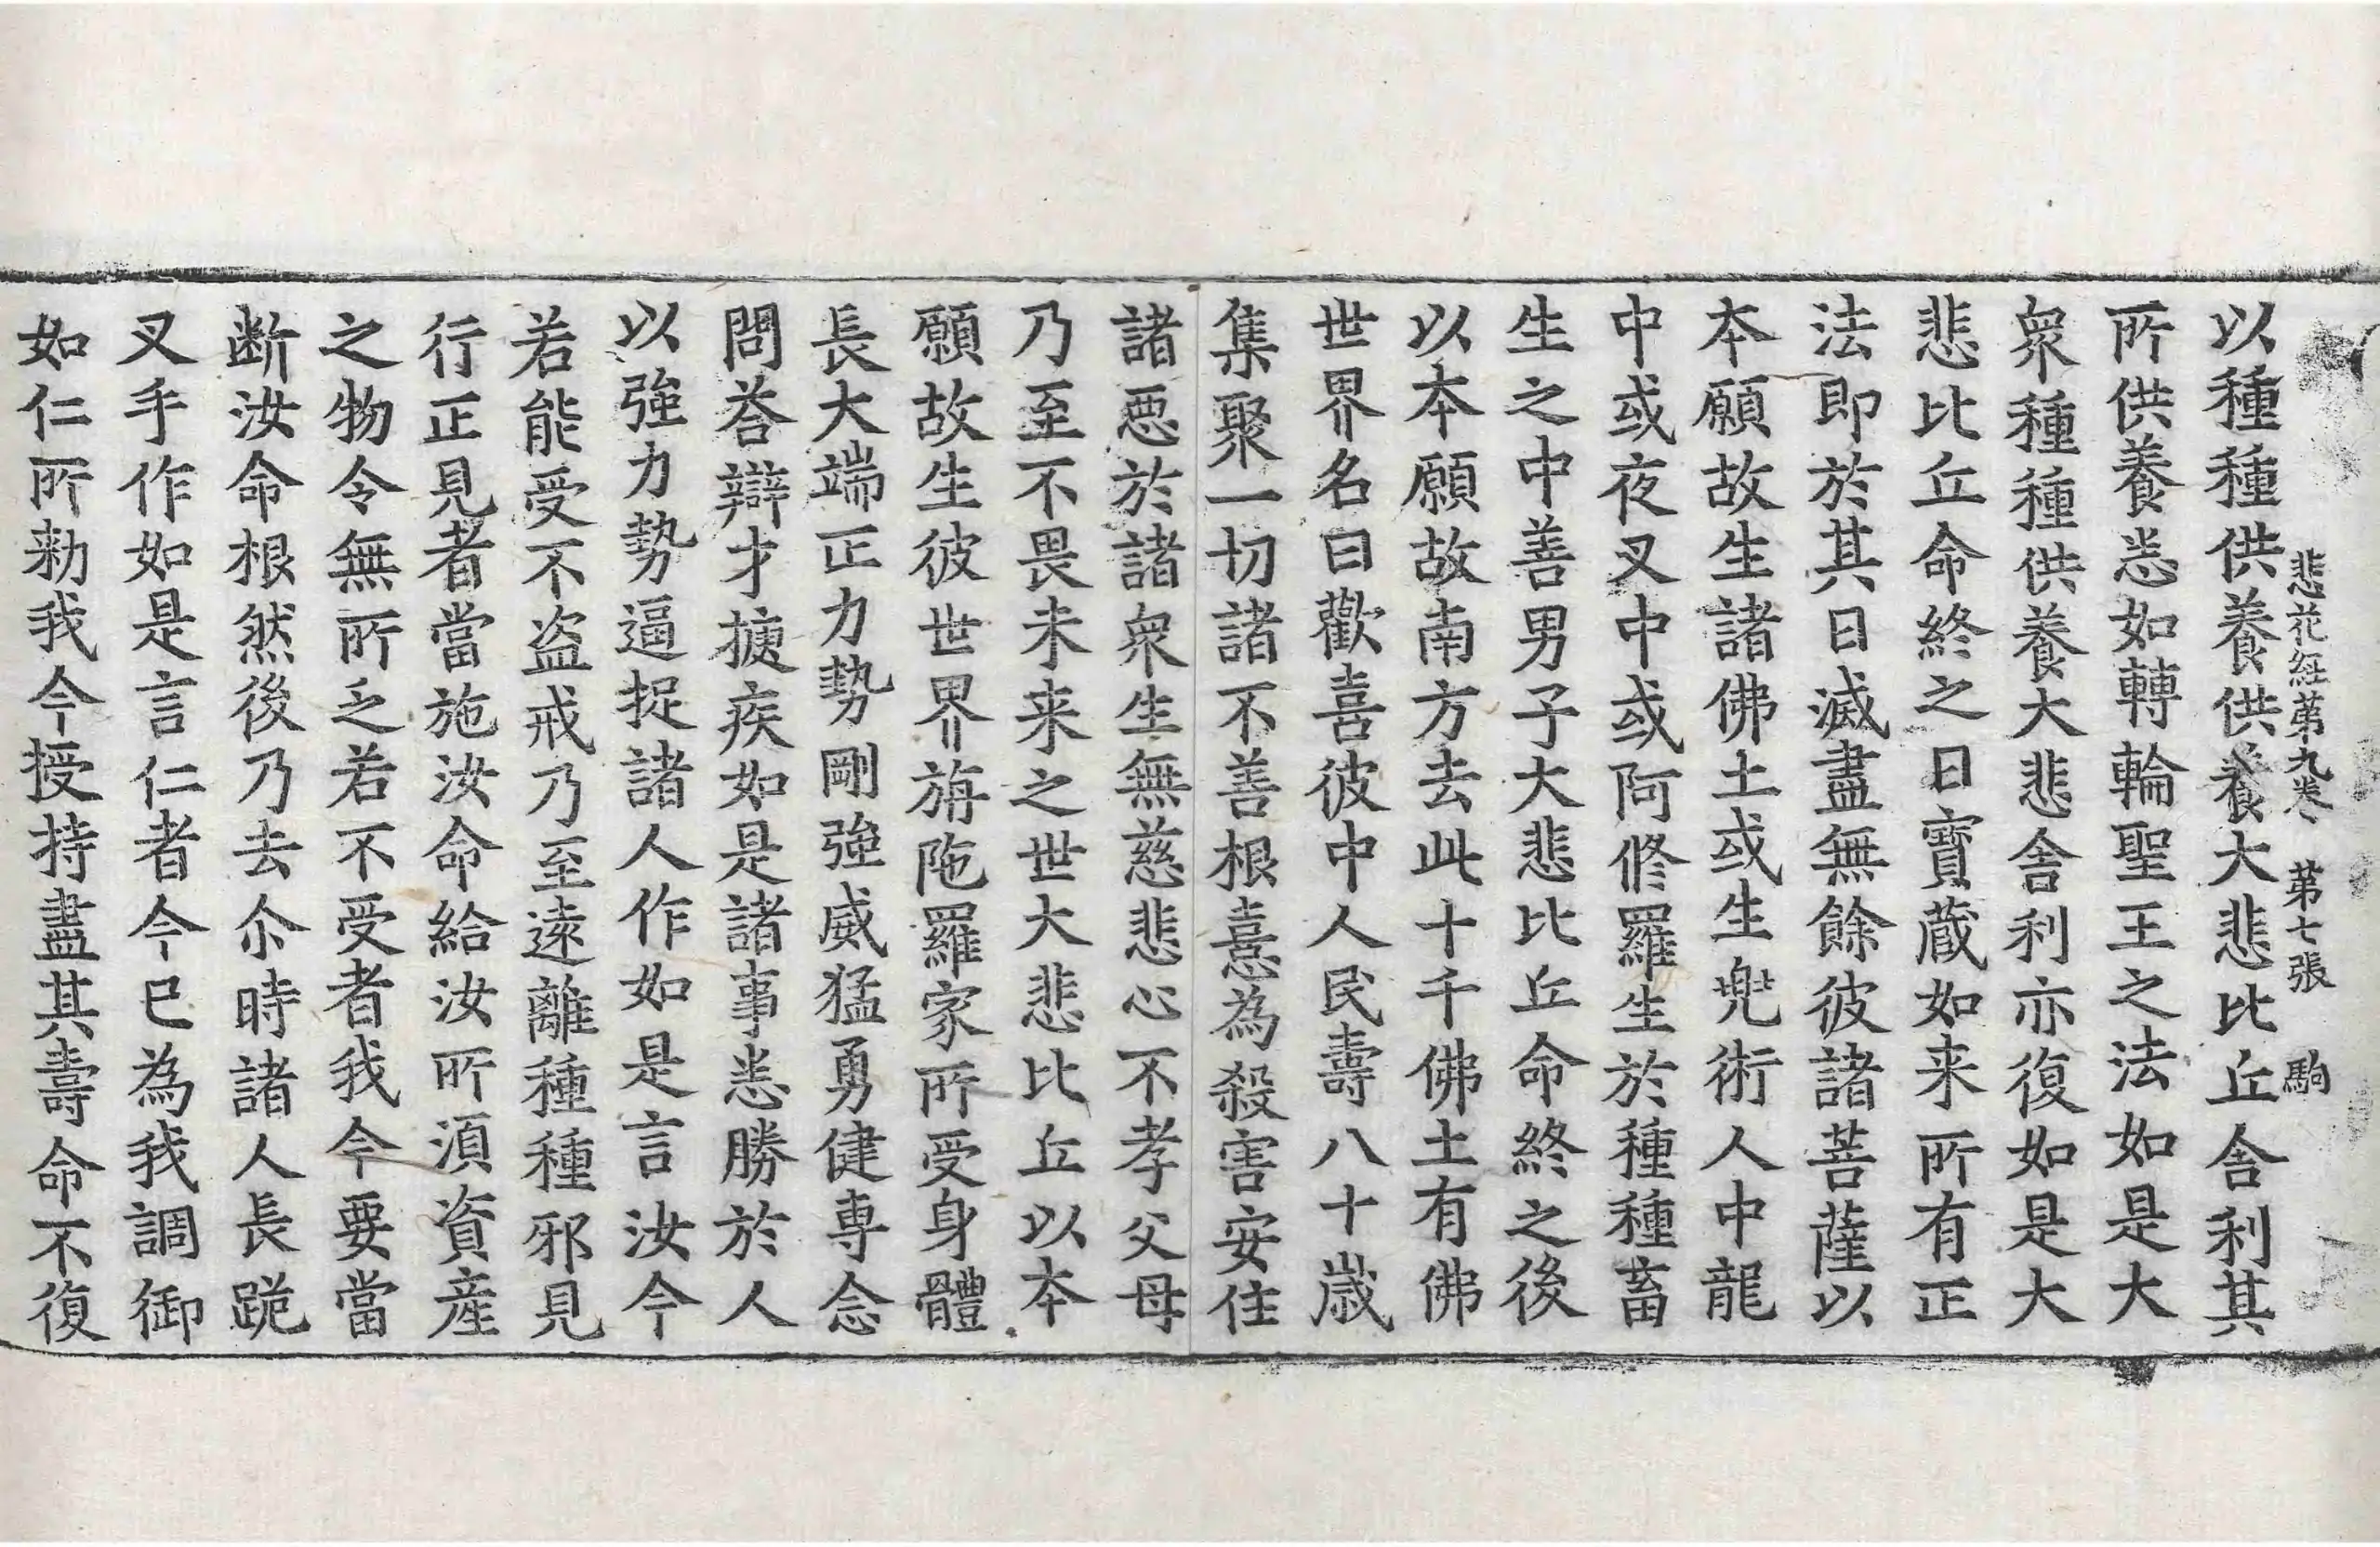 悲花経苐九卷　苐七張　駒
以種種供養供養大悲比丘舎利其
所供養悉如轉輪聖王之法如是大
衆種種供養大悲舎利亦復如是大
悲比丘命終之日寶蔵如来所有正
法即於其日滅盡無餘彼諸菩薩以
本願故生諸佛土或生兜術人中龍
中或夜叉中或阿修羅生於種種畜
生之中善男子大悲比丘命終之後
以本願故南方去此十千佛土有佛
世界名曰歡喜彼中人民壽八十歳
集聚一切諸不善根憙為殺害安住
諸惡於諸衆生無慈悲心不孝父母
乃至不畏未来之世大悲比丘以本
願故生彼世界旃陁羅家所受身體
長大端正力勢剛強威猛勇健専念
問荅辯才㨗疾如是諸事悉勝於人
以強力勢逼捉諸人作如是言汝今
若能受不盗戒乃至遠離種種邪見
行正見者當施汝命給汝所湏資産
之物令無所乏若不受者我今要當
断汝命根然後乃去尒時諸人長跪
叉手作如是言仁者今已為我調御
如仁所勑我今授持盡其壽命不復